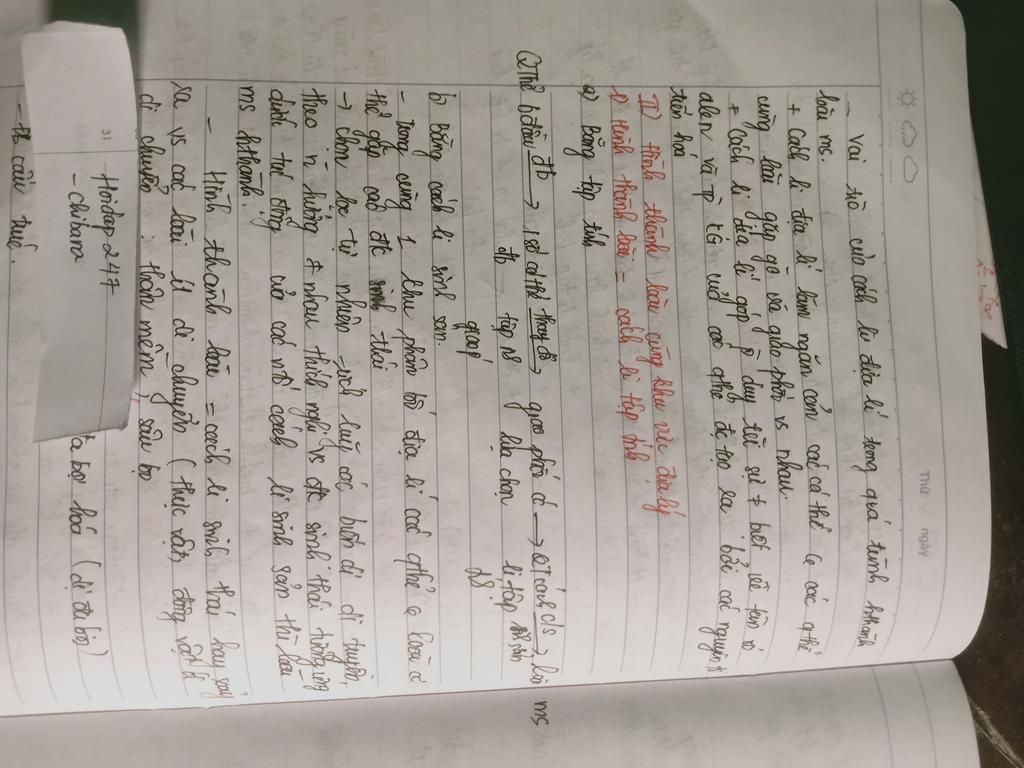 Thứ ngày
- Vai trò của cách li địa lí trong quá trình hthành
loài ms.
+ Cách li địa lí làm ngăn cản các cá thể ϵ các qthể
cùng loài gặp gỡ và giao phối vs nhau.
+ Cách li địa lí góp p duy trì sự ≠ biệt về tần số
alen và tp KG giữa các qthể đc tạo ra bởi các nguyên tố
tiến hoá
II) Hình thành loài cùng khu vực địa lý
1) Hình thành loài = cách li tập tính
a) Bằng tập tính
Qthể b.đầu đb → 1 số cá thể thay đổi → giao phối có → cách → loài ms
đb tập tính lựa chọn li tập tính
b) Bằng cách li sinh sản.
- Trong cùng 1 khu phân bố địa lí các qthể ϵ loài có
thể gặp các đk sinh thái
→ chọn lọc tự nhiên tích luỹ các biến dị di truyền
theo n hướng ≠ nhau thích nghi vs đk sinh thái tương ứng
dinh trí đồng của các cách li sinh sản thì loài
ms hthành.
- Hình thành loài = cách li sinh thái hay xảy
ra vs các loài ít di chuyển (thực vật, động vật ít
di chuyển: thân mềm, sâu bọ
31
Hoidap247
- chibara
bội hoá (dị đa bội)
- cấu trúc.